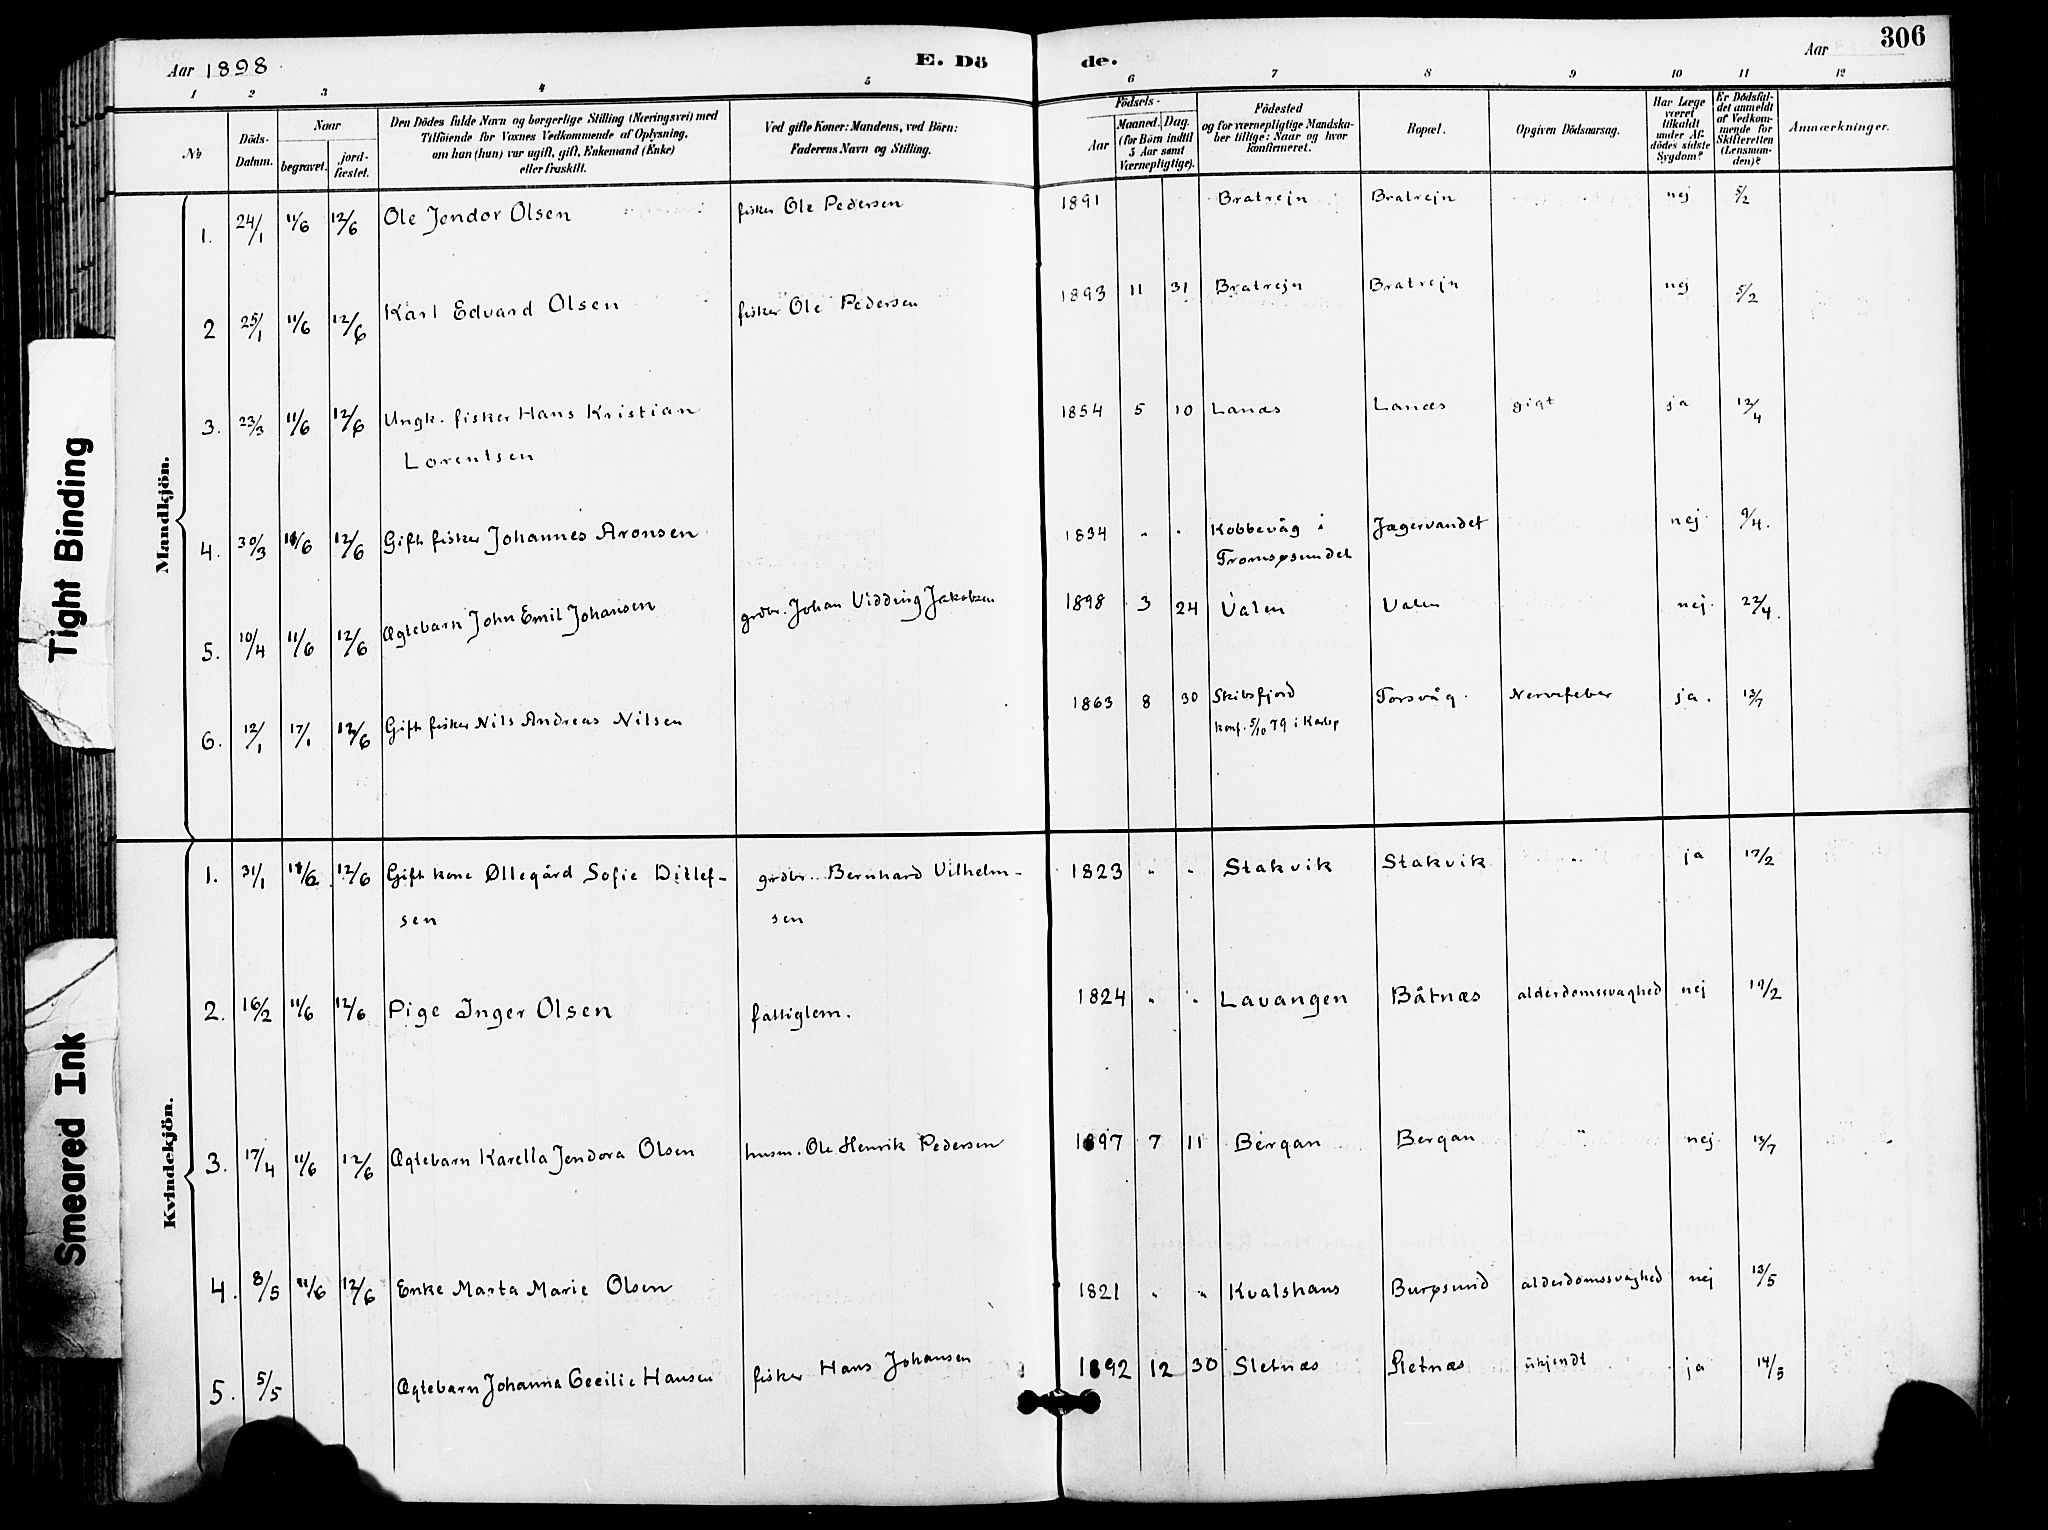 Aar 1898.
E. Dö
de.
Aar
306
1 2 3 4 5 6 7 8 9 10 11 12
№
Döds-
Datum.
Naar
begravet.
jord-
fæstet.
Den Dödes fulde Navn og borgerlige Stilling (Næringsvei) med
Tilföiende for Voxnes Vedkommende af Oplysning,
om han (hun) var ugift, gift, Enkemand (Enke)
eller fraskilt.
Ved gifte Koner: Mandens, ved Börn:
Faderens Navn og Stilling.
Födsels-
Aar
Maaned. Dag.
(for Börn indtil
5 Aar samt
Værnepligtige).
Födested
og for værnepligtige Mandska-
ber tillige: Naar og hvor
konfirmeret.
Bopæl.
Opgiven Dödsaarsag.
Har Læge
været
tilkaldt
under Af-
dödes sidste
Sygdom?
Er Dödsfal-
det anmeldt
af Vedkom-
mende for
Skifteretten
(Lensman-
den)?
Anmærkninger.
Mandkjön.
1. 24/1 11/6 12/6 Ole Jendor Olsen fisker Ole Pedersen 1891 Bratrejn Bratrejn nej 5/2
2 25/1 11/6 12/6 Karl Edvard Olsen fisker Ole Pedersen 1893 11 31 Bratrejn Bratrejn nej 5/2
3. 23/3 11/6 12/6 Ungk. fisker Hans Kristian 1854 5 10 Lanæs Lanæs gigt ja 12/4
Lorentsen
4. 30/3 12/6 Gift fisker Johannes Aronsen 1834 " " Kobbevåg i Jægervandet nej 9/4.
Tromsøsundet
5. 10/4 11/6 12/6 Ægtebarn John Emil Johansen grdbr. Johan Vidding Jakobsen 1898 3 24 Valen Valen nej 22/4.
6. 12/1 17/1 12/6 Gift fisker Nils Andreas Nilsen 1863 8 30 Skibsfjord Torsvåg. Nervefeber ja. 13/7
konf. 5/10 79 i Karlsø
Kvindekjön.
1. 31/1 12/6 Gift kone Øllegård Sofie Ditlef- grdbr. Bernhard Vilhelm- 1823 " " Stakvik Stakvik " ja 17/2
sen sen
2. 16/2 11/6 12/6 Pige Inger Olsen fattiglem. 1824 " " Lavangen Båtnæs alderdomssvaghed nej
3. 17/4 11/6 12/6 Ægtebarn Karella Jendora Olsen husm. Ole Henrik Pedersen 1897 7 11 Bergan Bergan " nej 13/7
4. 8/5 11/6 12/6 Enke Marta Marie Olsen 1821 " " Kvalshaus Burøsund alderdomssvaghed nej 13/5
5. 5/5 Ægtebarn Johanna Cecilie Hansen fisker Hans Johansen 1892 12 30 Sletnæs Sletnæs ukjendt ja 14/5
Tight Binding
Smeared Ink